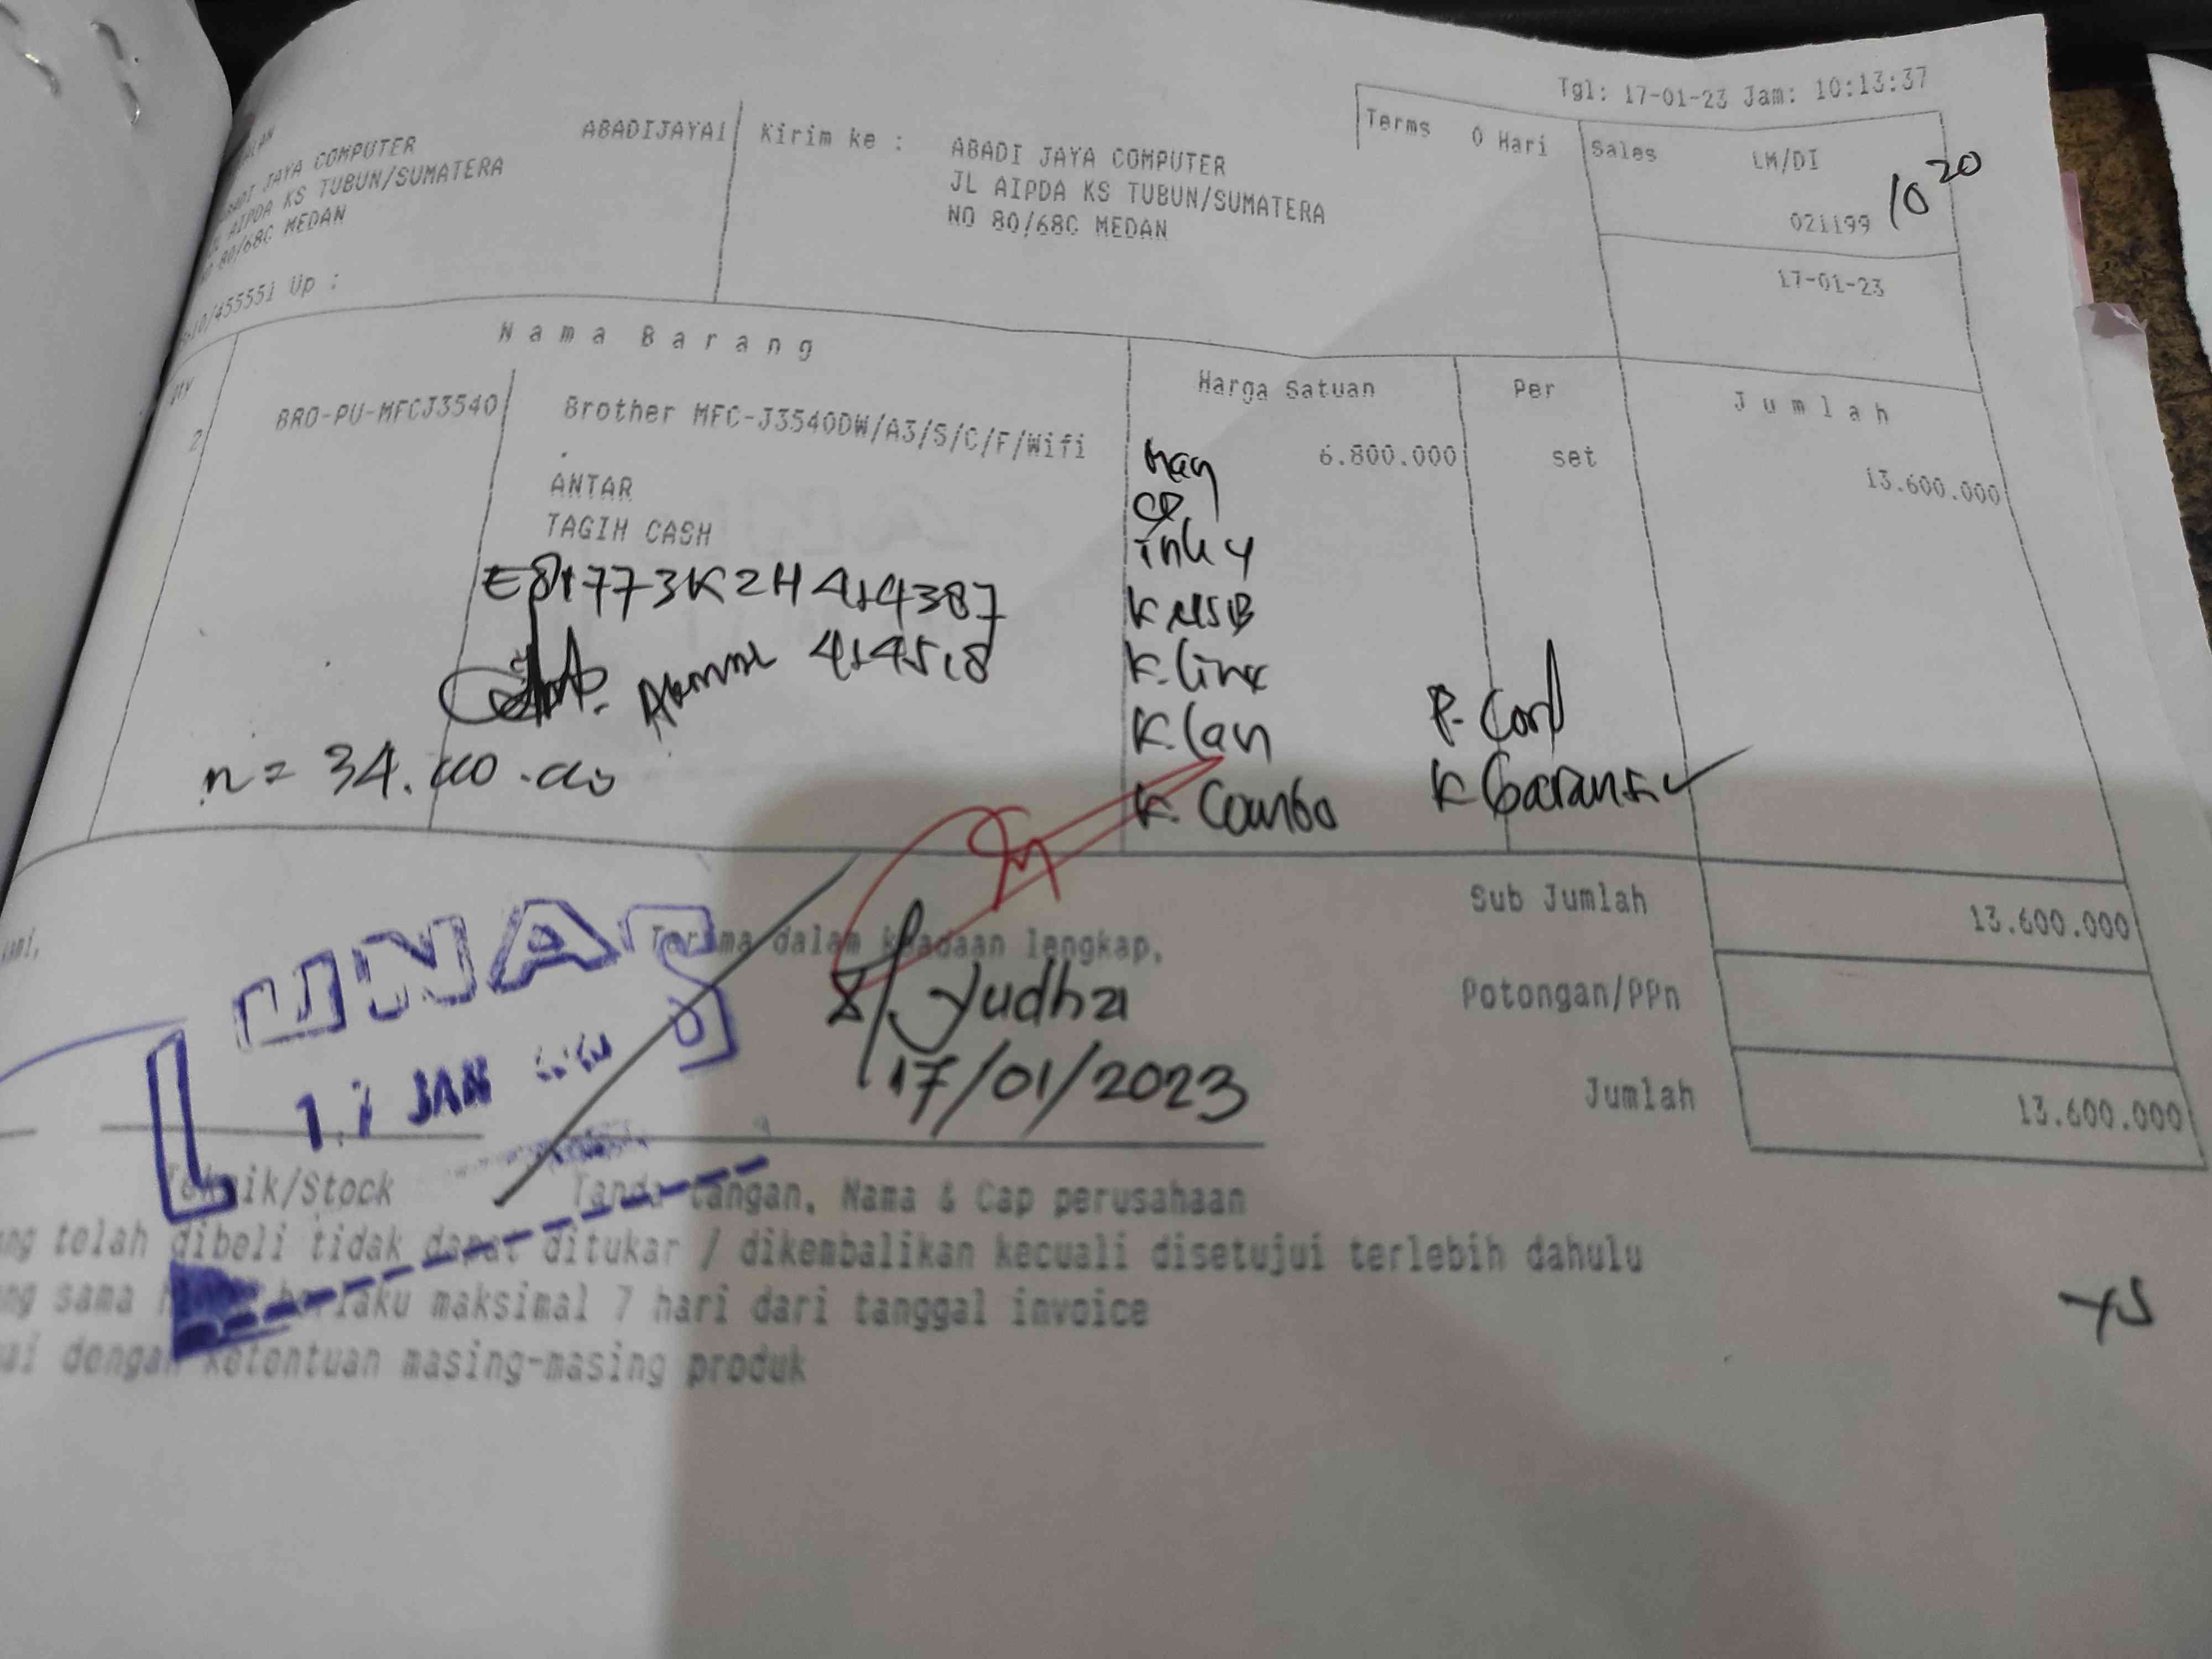 Tgl: 17-01-23 Jam: 10:13:37
ABADI JAYA COMPUTER ABADIJAYA1
JL AIPDA KS TUBUN/SUMATERA
NO 80/68C MEDAN
/455551 Up :
Kirim ke : ABADI JAYA COMPUTER
JL AIPDA KS TUBUN/SUMATERA
NO 80/68C MEDAN
Terms 0 Hari Sales LM/DI
021199 10 20
17-01-23
Qty Nama Barang Harga Satuan Per Jumlah
2 BRO-PU-MFCJ3540 Brother MFC-J3540DW/A3/S/C/F/Wifi 6.800.000 set 13.600.000
.
ANTAR
TAGIH CASH
CD
ink 4
K USB
K. line
K. lan
K. Combo
P. Cord
K Garansi
Sub Jumlah 13.600.000
Potongan/PPn
Jumlah 13.600.000
Terima dalam keadaan lengkap,
LUNAS
17 JAN
Yudha
17/01/2023
Teknik/Stock
Tanda tangan, Nama & Cap perusahaan
telah dibeli tidak dapat ditukar / dikembalikan kecuali disetujui terlebih dahulu
sama berlaku maksimal 7 hari dari tanggal invoice
dengan ketentuan masing-masing produk
YS